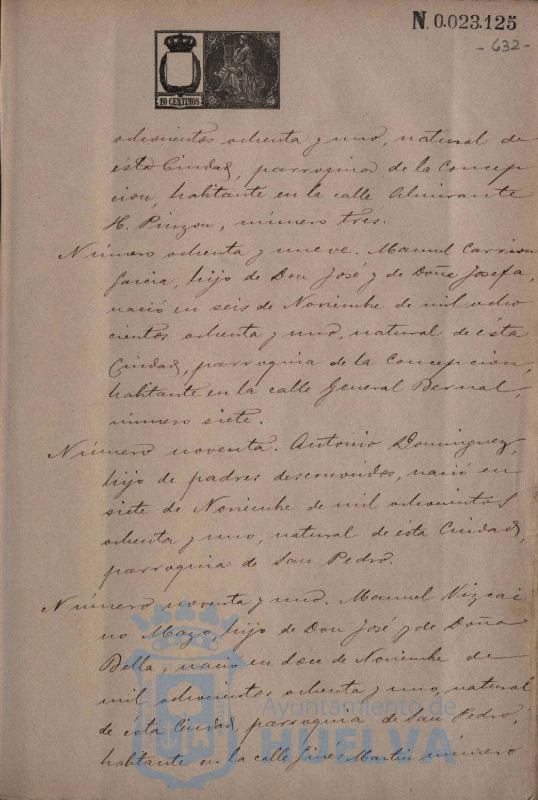 N. 0.023.125
- 632 -
10 CENTIMOS
ochocientos ochenta y uno, natural de
ésta Ciudad, parroquia de la Concep
cion, habitante en la calle Almirante
H. Pinzon, número tres.
Número ochenta y nueve. Manuel Carrion
Garcia, hijo de Don José y de Doña Josefa,
nació en seis de Noviembre de mil ocho
cientos ochenta y uno, natural de ésta
Ciudad, parroquia de la Concepcion,
habitante en la calle General Bernal,
número siete.
Número noventa. Antonio Dominguez,
hijo de padres desconocidos, nació en
siete de Noviembre de mil ochocientos
ochenta y uno, natural de ésta Ciudad,
parroquia de San Pedro.
Número noventa y uno. Manuel Vizcai
no Mazo, hijo de Don José y de Doña
Bella, nació en doce de Noviembre de
mil ochocientos ochenta y uno, natural
de ésta Ciudad, parroquia de San Pedro,
habitante en la calle Gines Martin número
Ayuntamiento de
HUELVA